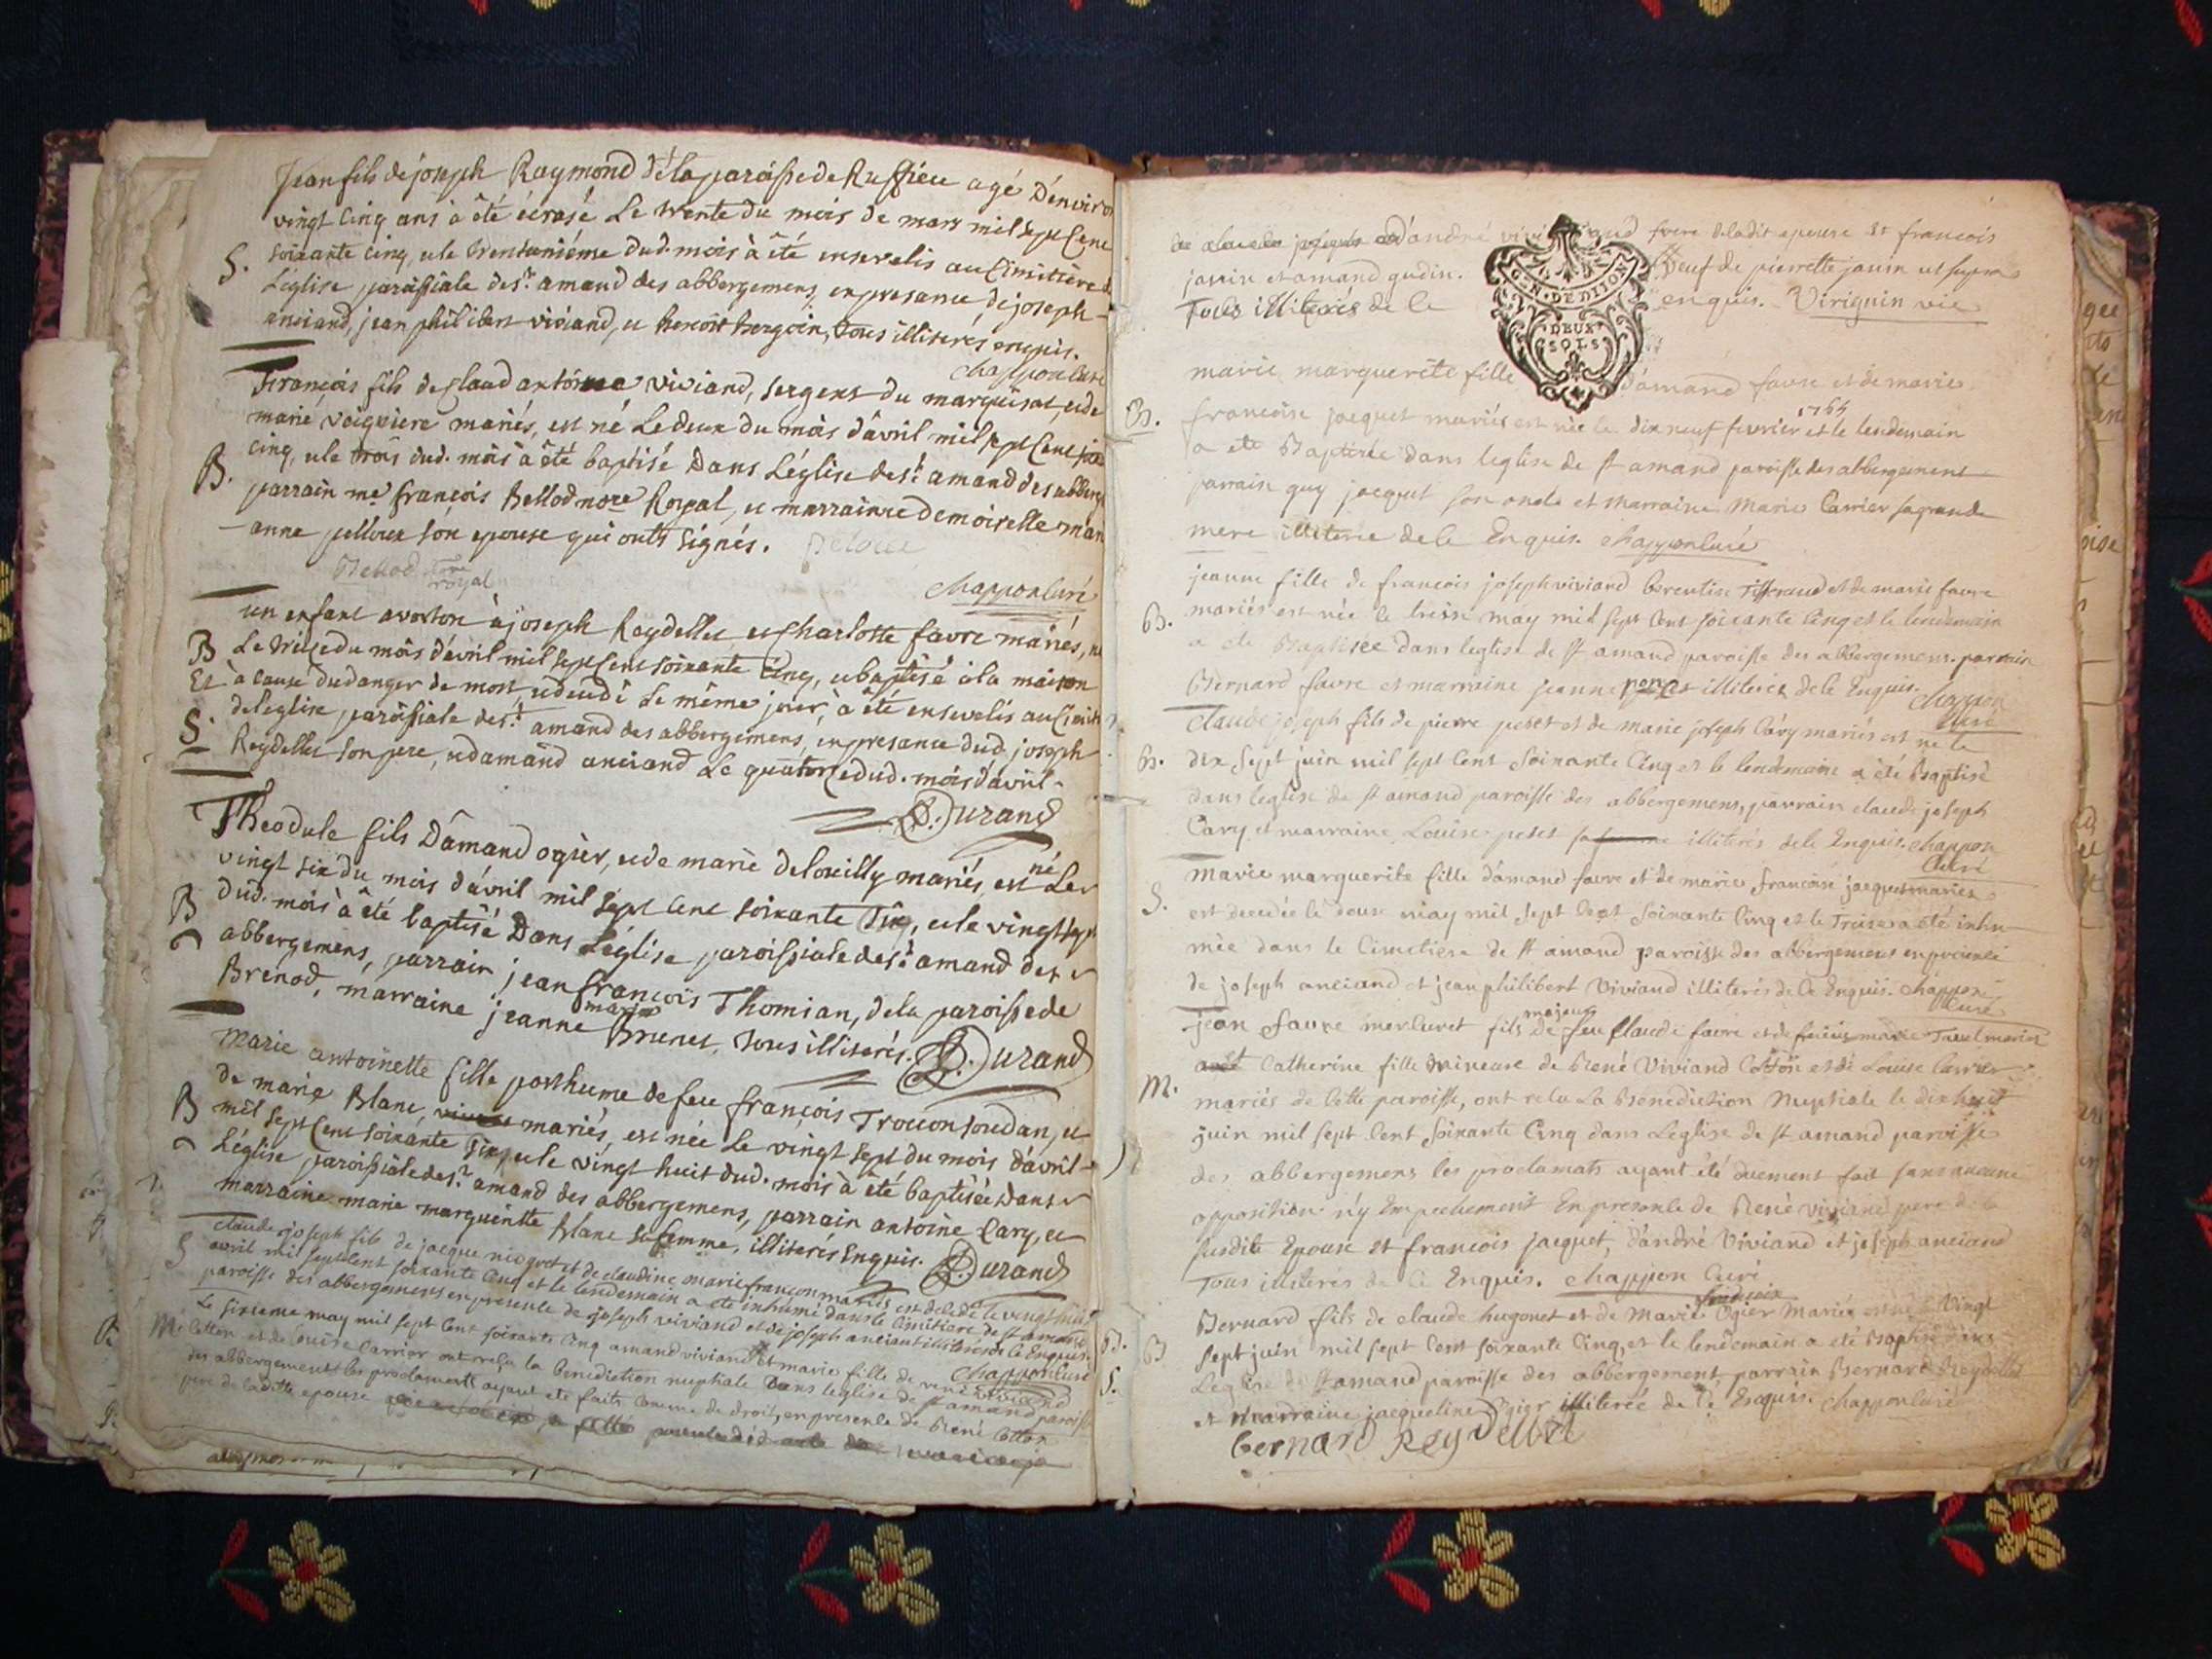 Jean fils de joseph Raymond de la paroisse de Ruffieu agé d'environ
vingt cinq ans à été écrasé Le trente du mois de mars mil sept cent
S. soixante cinq, et le trentunième dud. mois à été enseveli au Cimitière d
L'église paroissiale de st. amand des abbergemens, en presance de joseph
anciand, jean philibert viviand, et benoit bergoin, tous illiterés enquis.
chappon curé
François fils de Claud antoine viviand, sergent du marquisat, et de
marie mariés, est né Le deux du mois d'avril mil sept cent soix
cinq, et le trois dud. mois à été baptisé Dans L'église de st. amand des abberg
B. parrain me françois Bellod nore Royal, et marrainne demoiselle mar
anne pelloux son epouse qui onts signés. pelloux
Bellod nore royal
chappon curé
un enfant avorton à joseph Reydellet et Charlotte favre mariés, n
B Le treize du mois d'avril mil sept cent soixante cinq, et baptisé à la maison
Et à cause du danger de mort, et decedé Le même jour, à été enseveli au Cimit
S. de l'eglise paroissiale de st. amand des abbergemens, en presance dud. joseph
Reydellet son pere, et d'amand anciand Le quatorze dud. mois d'avril
D. Durand
Theodule fils D'amand ogier, et de marie mariés, est né Le
vingt six du mois d'avril mil sept cent soixante six, et le vingt sept
B dud. mois à été baptisé Dans L'église paroissiale de st. amand des
abbergemens, parrain jean françois Thomian, de la paroisse de
Brenod, marraine jeanne marie Brunet, tous illiterés. D. Durand
Marie antoinette fille posthume de feu françois Troccon soudan, et
de marie Blanc, mariés, est née Le vingt sept du mois d'avril
B mil sept cent soixante six, et le vingt huit dud. mois à été baptisée Dans
L'église paroissiale de st. amand des abbergemens, parrain antoine Cary, et
marraine marie marguerite blanc sa femme, illiterés Enquis. D. Durand
S claude joseph fils de jacque nicquet et de claudine marie françon mariés est decedé le vingt huit
avril mil sept cent soixante cinq et le lendemain a eté inhumé dans le cimitiere de st amand
paroisse des abbergemens en presence de joseph viviand et de joseph anciant illiterés de ce Enquis.
chappon curé
Le sixieme may mil sept cent soixante cinq amand viviand et marie fille de rené viviand
M. cottier et de louise Carrier ont reçu la benediction nuptiale Dans leglise de st amand paroisse
des abbergement les proclamats ayant eté faits comme de droit, en presence de René
pere de laditte epouse
d'andré frere de ladit epouse et francois
janin et amand gudin. veuf de pierrette janin ut supra
Tous illiterés de ce enquis. Viriguin vic
G. N. DE DIJON
DEUX
SOLS
marie marguerite fille d'amand favre et de marie
B. francoise jacquet mariés est née le dix neuf fevrier 1765 et le lendemain
a eté Baptisée dans leglise de st amand paroisse des abbergement
parrain guy jacquet son oncle et marraine Marie Carrier sa grande
mere illiterée de ce Enquis. chappon curé
jeanne fille de francois joseph viviand et de marie favre
B. mariés est née le treise may mil sept cent soixante cinq et le lendemain
a eté Baptisée dans leglise de st amand paroisse des abbergemens. parrain
Bernard favre et marraine jeanne illiterés de ce Enquis. chappon
curé
claude joseph fils de pierre et de marie joseph Cary mariés est né le
B. dix sept juin mil sept cent soixante cinq et le lendemain a été Baptisé
dans leglise de st amand paroisse des abbergemens, parrain claude joseph
Cary et marraine Louise illiterés de ce Enquis. chappon
curé
marie marguerite fille d'amand favre et de marie francoise jacquet mariés
S. est decedée le douse may mil sept cent soixante cinq et le Treise a eté inhu
mée dans le Cimetiere de st amand paroisse des abbergemens en presence
de joseph anciand et jean philibert Viviand illiterés de ce Enquis. chappon
curé
jean favre fils majeur de feu Claude favre et de marie mariés
et Catherine fille mineure de René Viviand Cottier et de Louise Carrier
M. mariés de cette paroisse, ont reçu La Benediction Nuptiale le dix huit
juin mil sept cent soixante cinq dans Leglise de st amand paroisse
des abbergemens les proclamats ayant été duement fait sans aucune
opposition n'y Empechement En presence de René viviand pere de la
susdite Epouse et francois jacquet, d'andré Viviand et joseph anciand
Tous illiterés de ce Enquis. chappon curé
Bernard fils de claude hugonet et de Marie francoise Ogier Mariés est né le Vingt
B sept juin mil sept cent soixante cinq, et le lendemain a eté Baptisé dans
Leglise de st amand paroisse des abbergement parrain Bernard Reydellet
et Marraine jacqueline Ogier illiterée de ce Enquis. chappon curé
bernard Reydellet